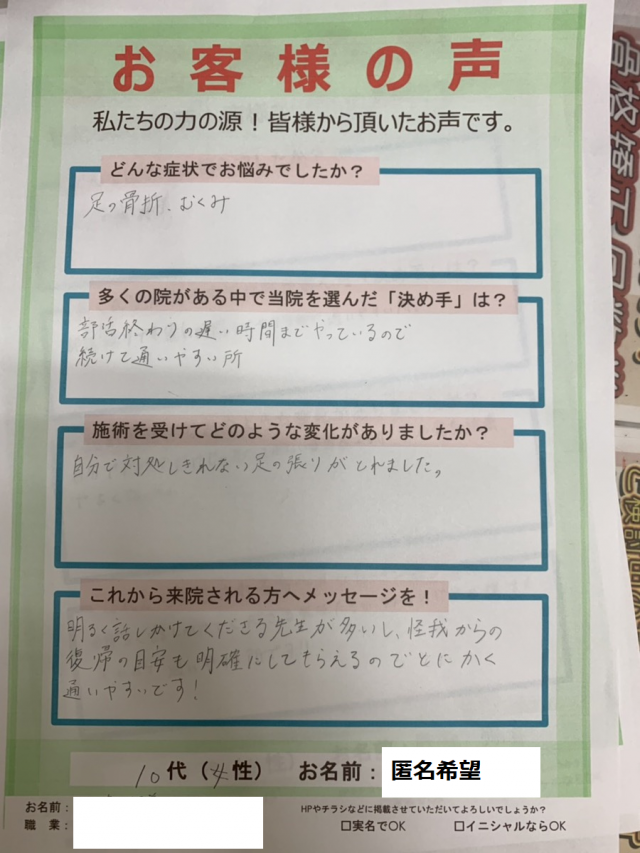 お客様の声
私たちの力の源！皆様から頂いたお声です。
どんな症状でお悩みでしたか？
足の骨折、むくみ
多くの院がある中で当院を選んだ「決め手」は？
部活終わりの遅い時間までやっているので
続けて通いやすい所
施術を受けてどのような変化がありましたか？
自分で対処しきれない足の張りがとれました。
これから来院される方へメッセージを！
明るく話しかけてくださる先生が多いし、怪我からの
復帰の目安も明確にしてもらえるのでとにかく
通いやすいです！
10代（女性） お名前：匿名希望
お名前：
職 業：
HPやチラシなどに掲載させていただいてよろしいでしょうか？
□実名でOK □イニシャルならOK
骨格矯正